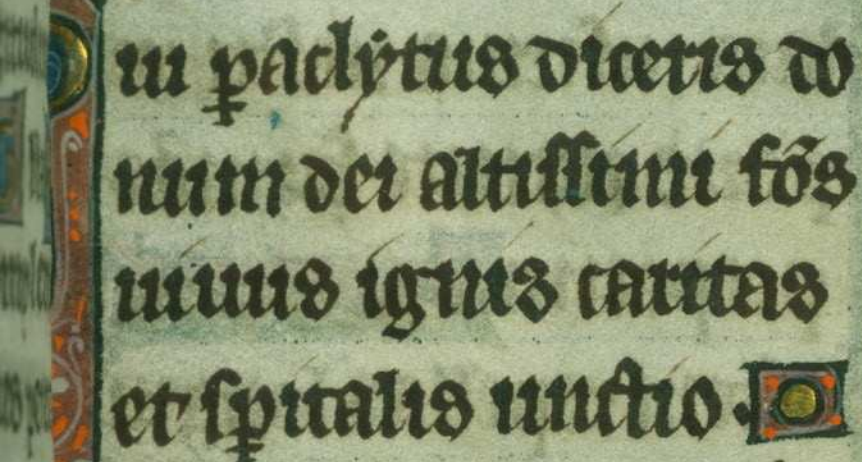 ui ꝑaclẏtus diceris do
num dei altissimi fōs
uiuus ignis caritas
et sꝑitalis unctio.